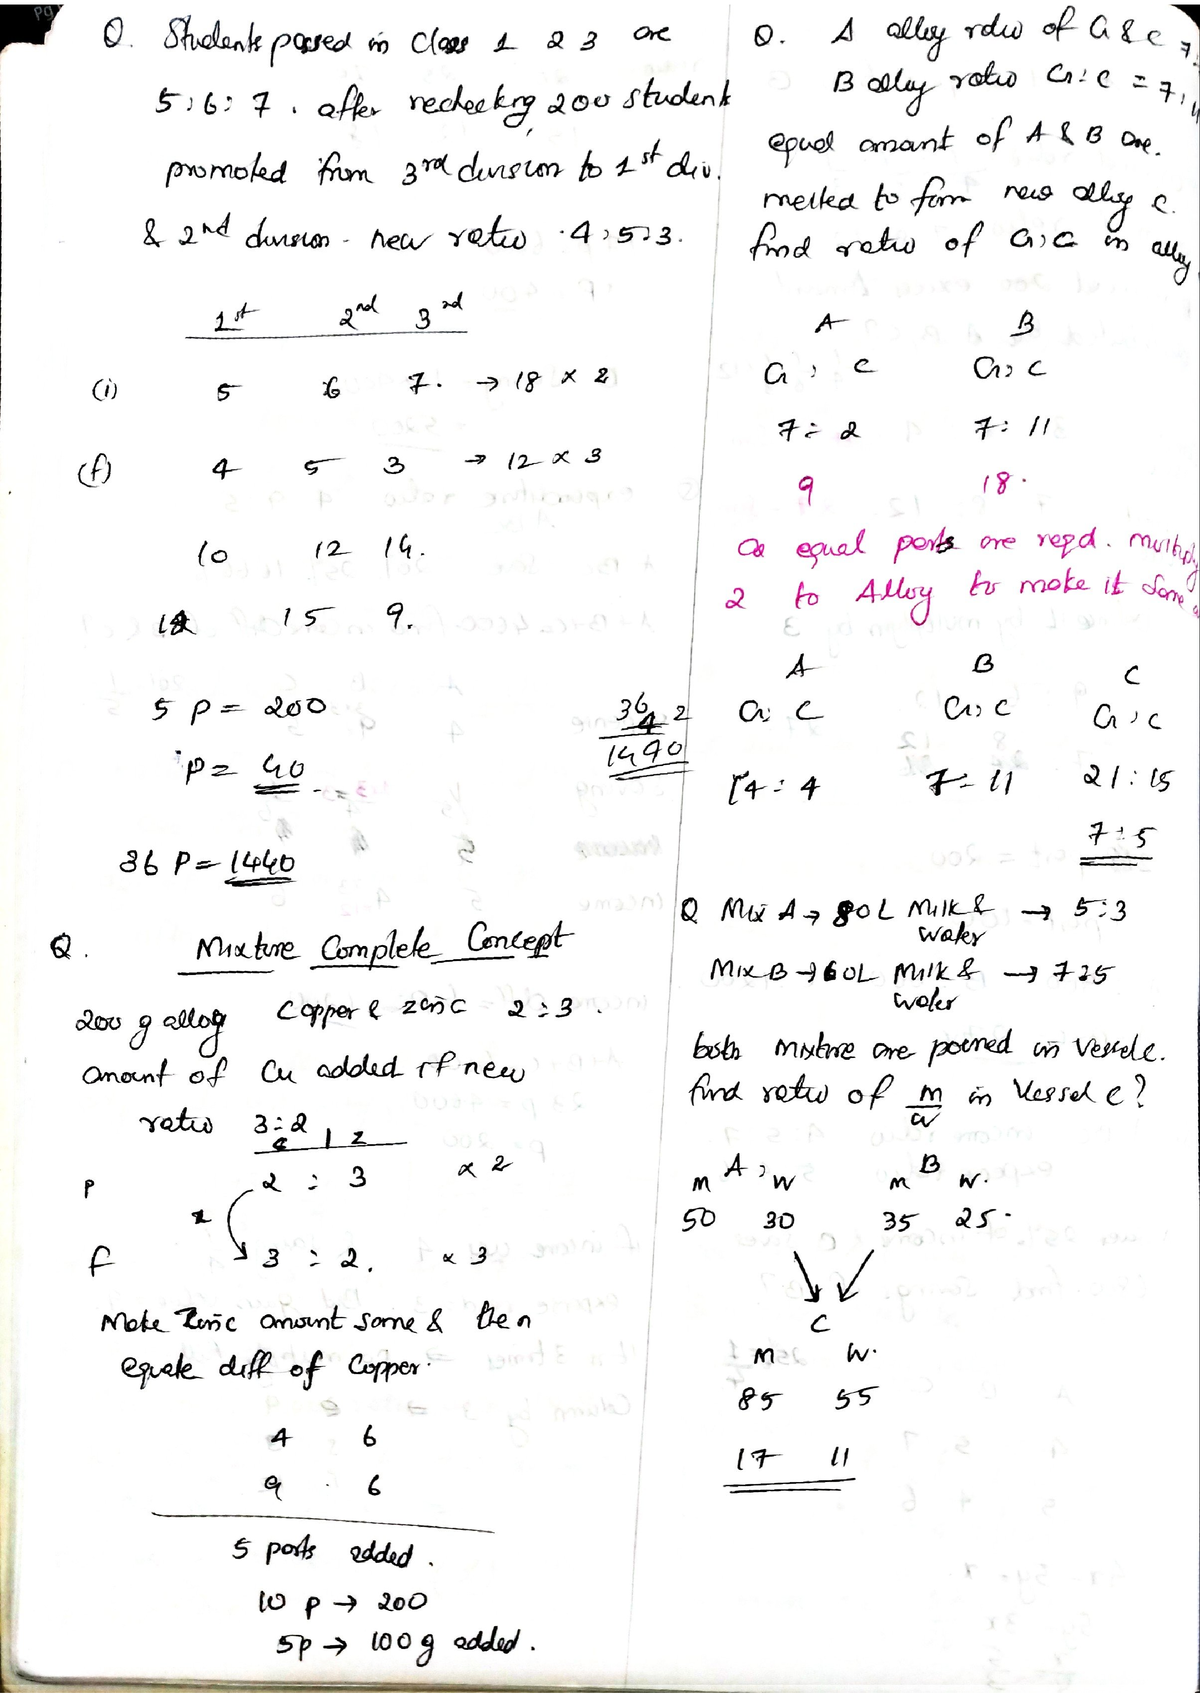 Q. Students passed in Class 1 2 3 are
5 : 6 : 7 . after recheckng 200 student
promoted from 3rd division to 1st div.
& 2nd division - new ratio . 4 : 5 : 3.
1st 2nd 3rd
(i) 5 6 7. → 18 x 2
(f) 4 5 3 → 12 x 3
10 12 14.
12 15 9.
5 P = 200
P = 40
36 4 2
1440
36 P = 1440
Q. Mixture Complete Concept
200 g alloy Copper & zinc 2 : 3 .
amount of Cu added if new
ratio 3 : 2
c | z
P 2 : 3 x 2
f 3 : 2. x 3
Make Zinc amount same & then
equate diff of Copper.
4 6
9 . 6
5 parts added .
10 p → 200
5p → 100 g added .
Q. A alloy ratio of G & C 7:
B alloy ratio G : C = 7 : 11
equal amount of A & B are.
melted to form new alloy C.
find ratio of G : C in alloy
A B
G : C G : C
7 : 2 7 : 11
9 18.
as equal parts are reqd. multiply
2 to Alloy to make it same
A B C
G : C G : C G : C
14 : 4 7 : 11 21 : 15
7 : 5
Q Mix A → 80L Milk & → 5 : 3
water
Mix B → 60L Milk & → 7 : 5
water
both mixture are poured in Vessele.
find ratio of m/w in Vessel C?
A B
m : w m w.
50 30 35 25.
C
m w.
85 55
17 11